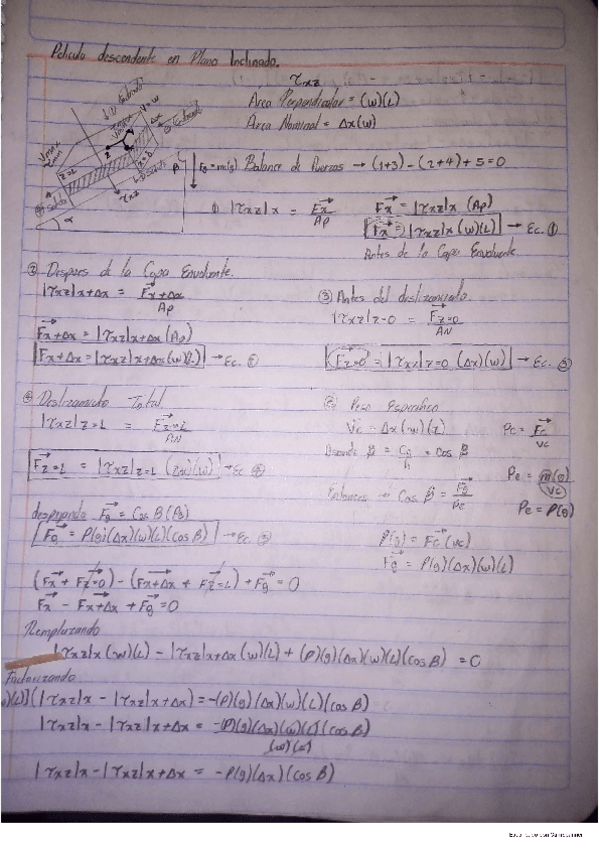 Pelicula descendente en Plano Inclinado.
τxz
Area Perpendicular = (w)(L)
Area Nominal = Δx(w)
Fg = m(g) Balance de fuerzas → (1+3) - (2+4) + 5 = 0
① |τxz|x = Fx/Ap
Fx = |τxz|x (Ap)
[Fx = |τxz|x (w)(L)] → Ec. ①
Antes de la Capa Envolvente
② Despues de la Capa Envolvente.
|τxz|x+Δx = Fx+Δx/Ap
Fx+Δx = |τxz|x+Δx (Ap)
[Fx+Δx = |τxz|x+Δx (w)(L)] → Ec. ②
③ Antes del deslizamiento
|τxz|z=0 = Fz=0/AN
[Fz=0 = |τxz|z=0 (Δx)(w)] → Ec. ③
④ Deslizamiento Total.
|τxz|z=L = Fz=L/AN
[Fz=L = |τxz|z=L (Δx)(w)] → Ec ④
Peso Especifico
Vc = Δx(w)(L)
Pe = Fc/Vc
= Cos β
Pe = m(g)/Vc
Entonces → Cos β = Fg/Fc
Pe = ρ(g)
despejando Fg = Cos β (Fg)
[Fg = ρ(g)(Δx)(w)(L)(cos β)] → Ec ⑤
ρ(g) = Fc (Vc)
Fg = ρ(g)(Δx)(w)(L)
(Fx + Fz=0) - (Fx+Δx + Fz=L) + Fg = 0
Fx - Fx+Δx + Fg = 0
Remplazando
|τxz|x (w)(L) - |τxz|x+Δx (w)(L) + (ρ)(g)(Δx)(w)(L)(cos β) = 0
Factorizando
w)(L)](|τxz|x - |τxz|x+Δx) = -(ρ)(g)(Δx)(w)(L)(cos β)
|τxz|x - |τxz|x+Δx = -(ρ)(g)(Δx)(w)(L)(cos β)
(w)(L)
|τxz|x - |τxz|x+Δx = -ρ(g)(Δx)(cos β)